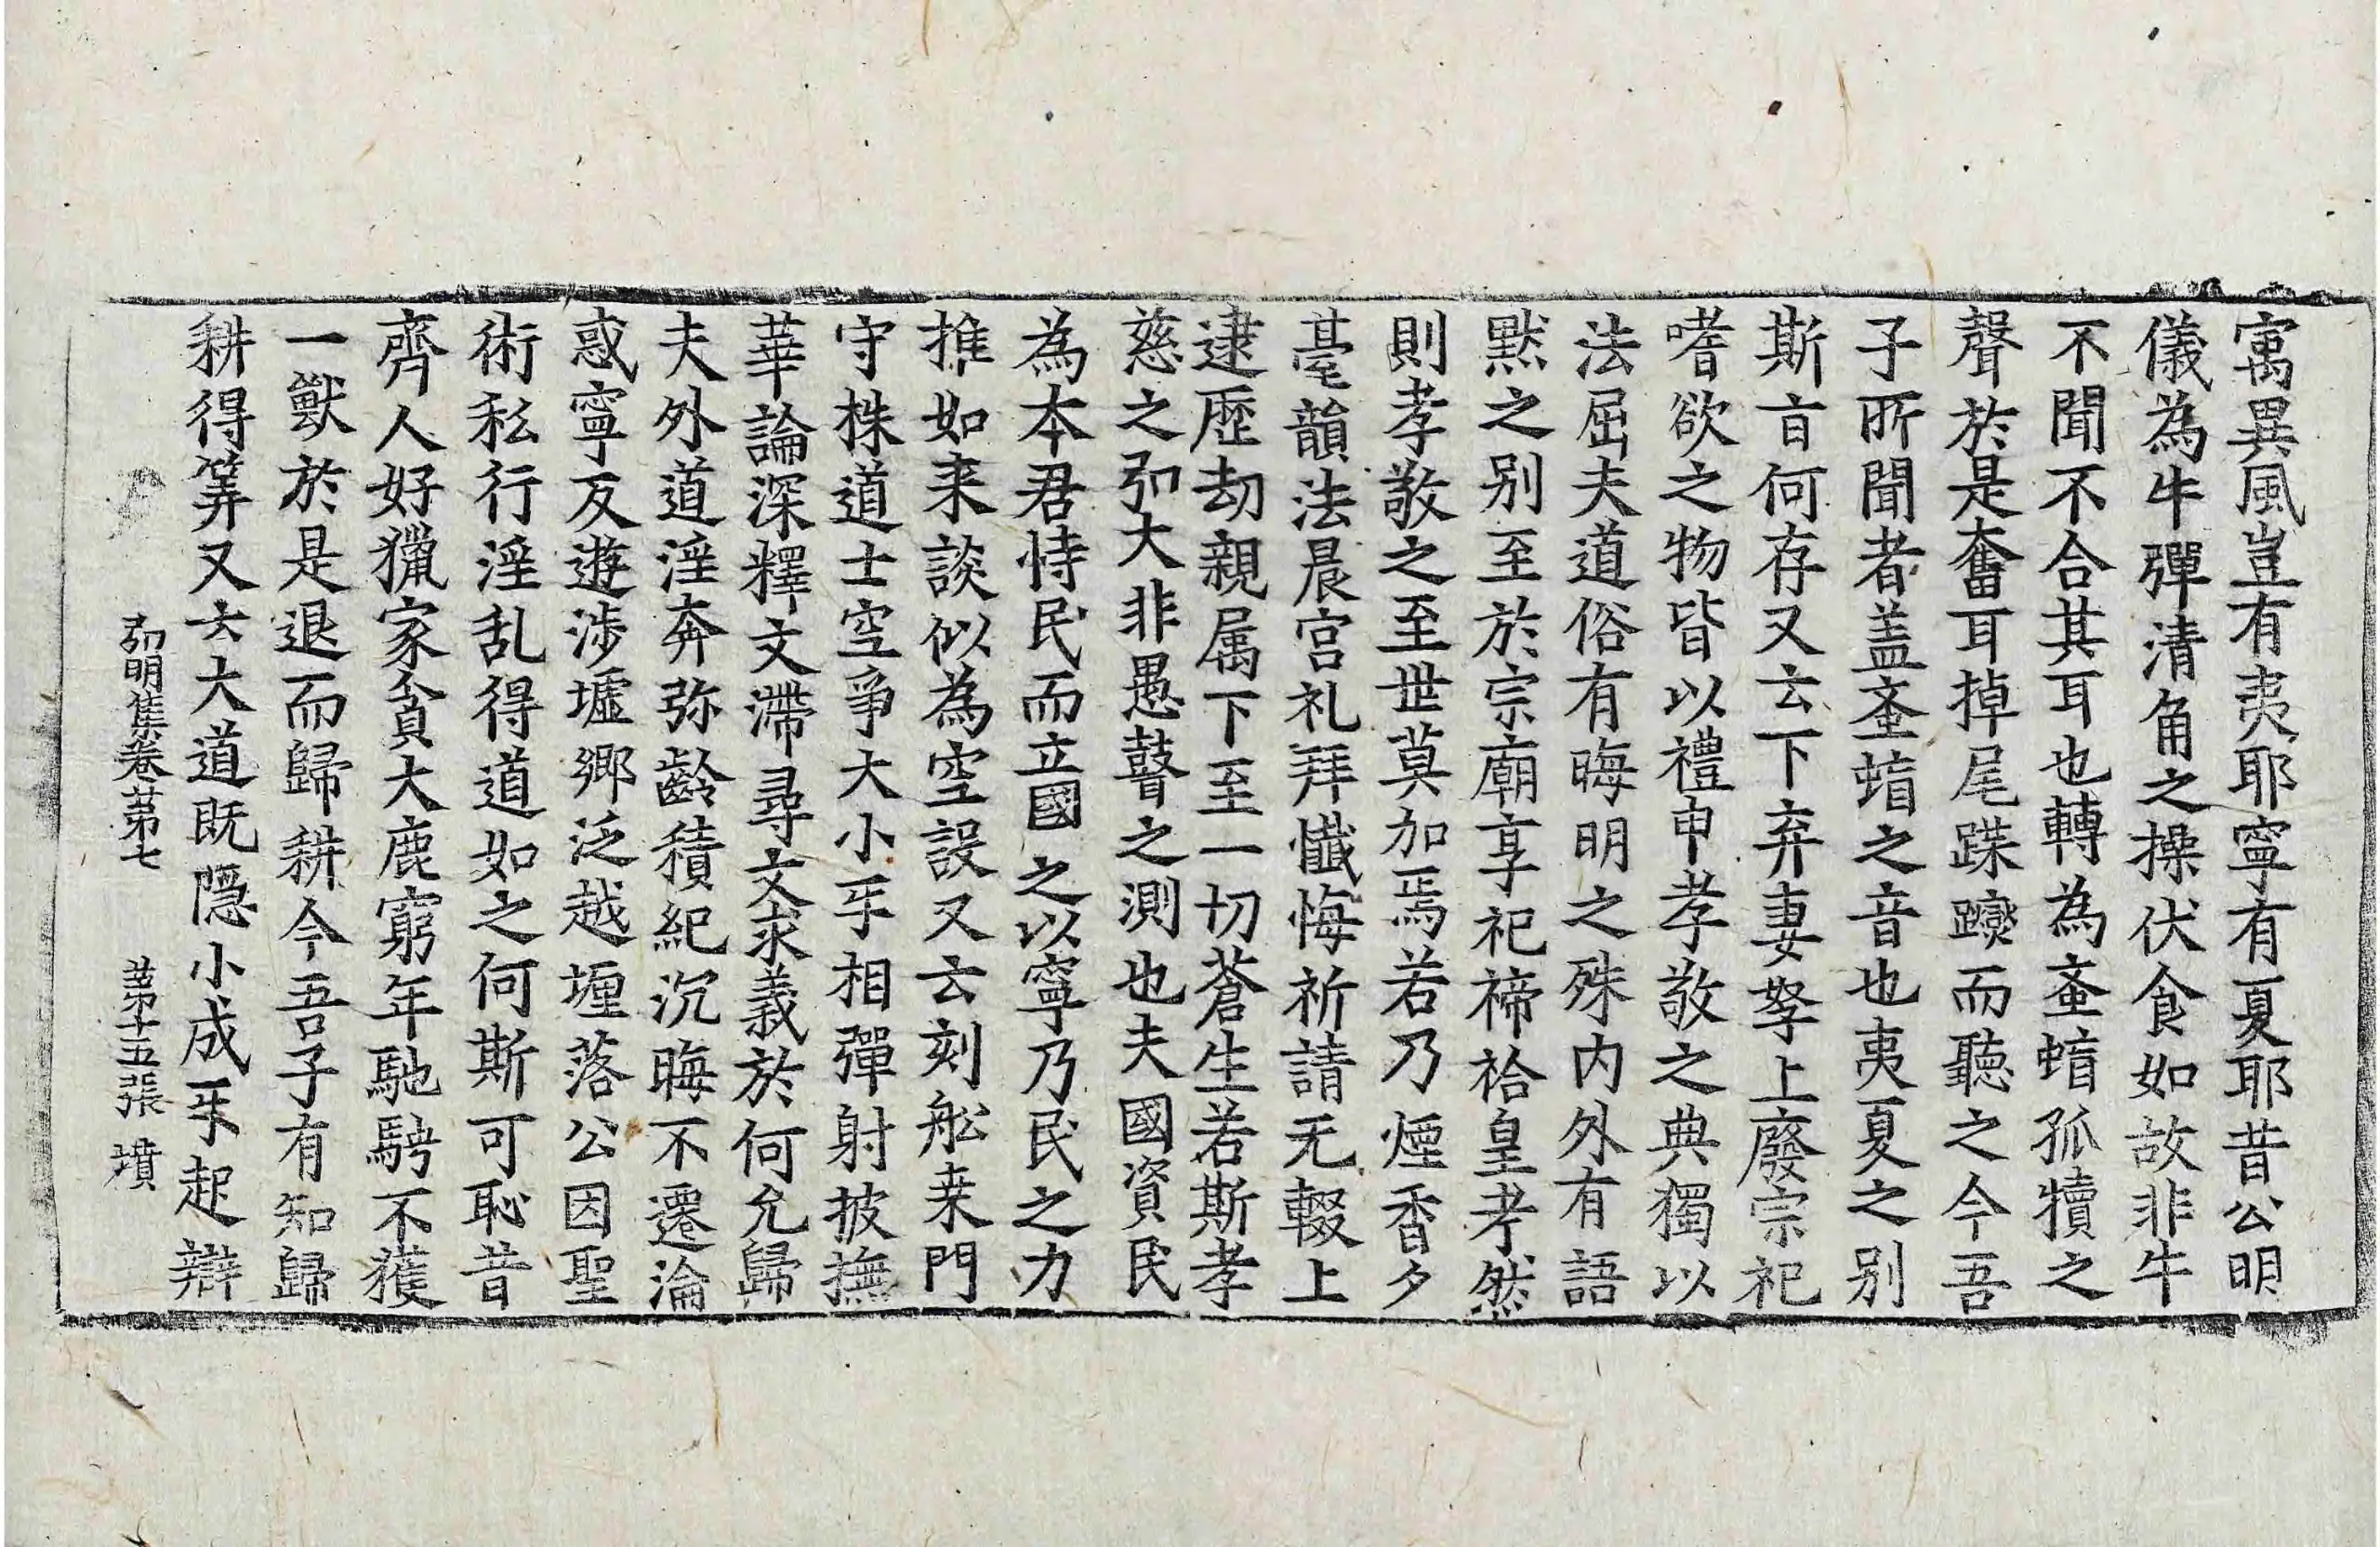 寓異風豈有夷耶寧有夏耶昔公明
儀為牛彈清角之操伏食如故非牛
不聞不合其耳也轉為䖟蝱孤犢之
聲於是奮耳掉尾蹀躞而聽之今吾
子所聞者盖䖟蝱之音也夷夏之別
斯旨何存又云下弃妻孥上廢宗祀
嗜欲之物皆以禮申孝敬之典獨以
法屈夫道俗有晦明之殊内外有語
黙之别至於宗廟享祀禘祫皇考然
則孝敬之至世莫加焉若乃煙香夕
臺韻法晨宫礼拜懺悔祈請无輟上
逮歷劫親属下至一切蒼生若斯孝
慈之弘大非愚瞽之測也夫國資民
為本君恃民而立國之以寧乃民之力
推如来談似為空設又云刻舩桒門
守株道士空爭大小㸦相彈射披撫
華論深釋文滯尋文求義於何允歸
夫外道淫奔弥齡積紀沉晦不遷淪
惑寧反遊涉墟鄉泛越㕓落公因聖
術私行淫乱得道如之何斯可恥昔
齊人好獵家貧大鹿窮年馳騁不獲
一獸於是退而歸耕今吾子有知歸
耕得筭又云大道既隠小成㸦起辯
弘明集卷苐七 苐十五張 墳